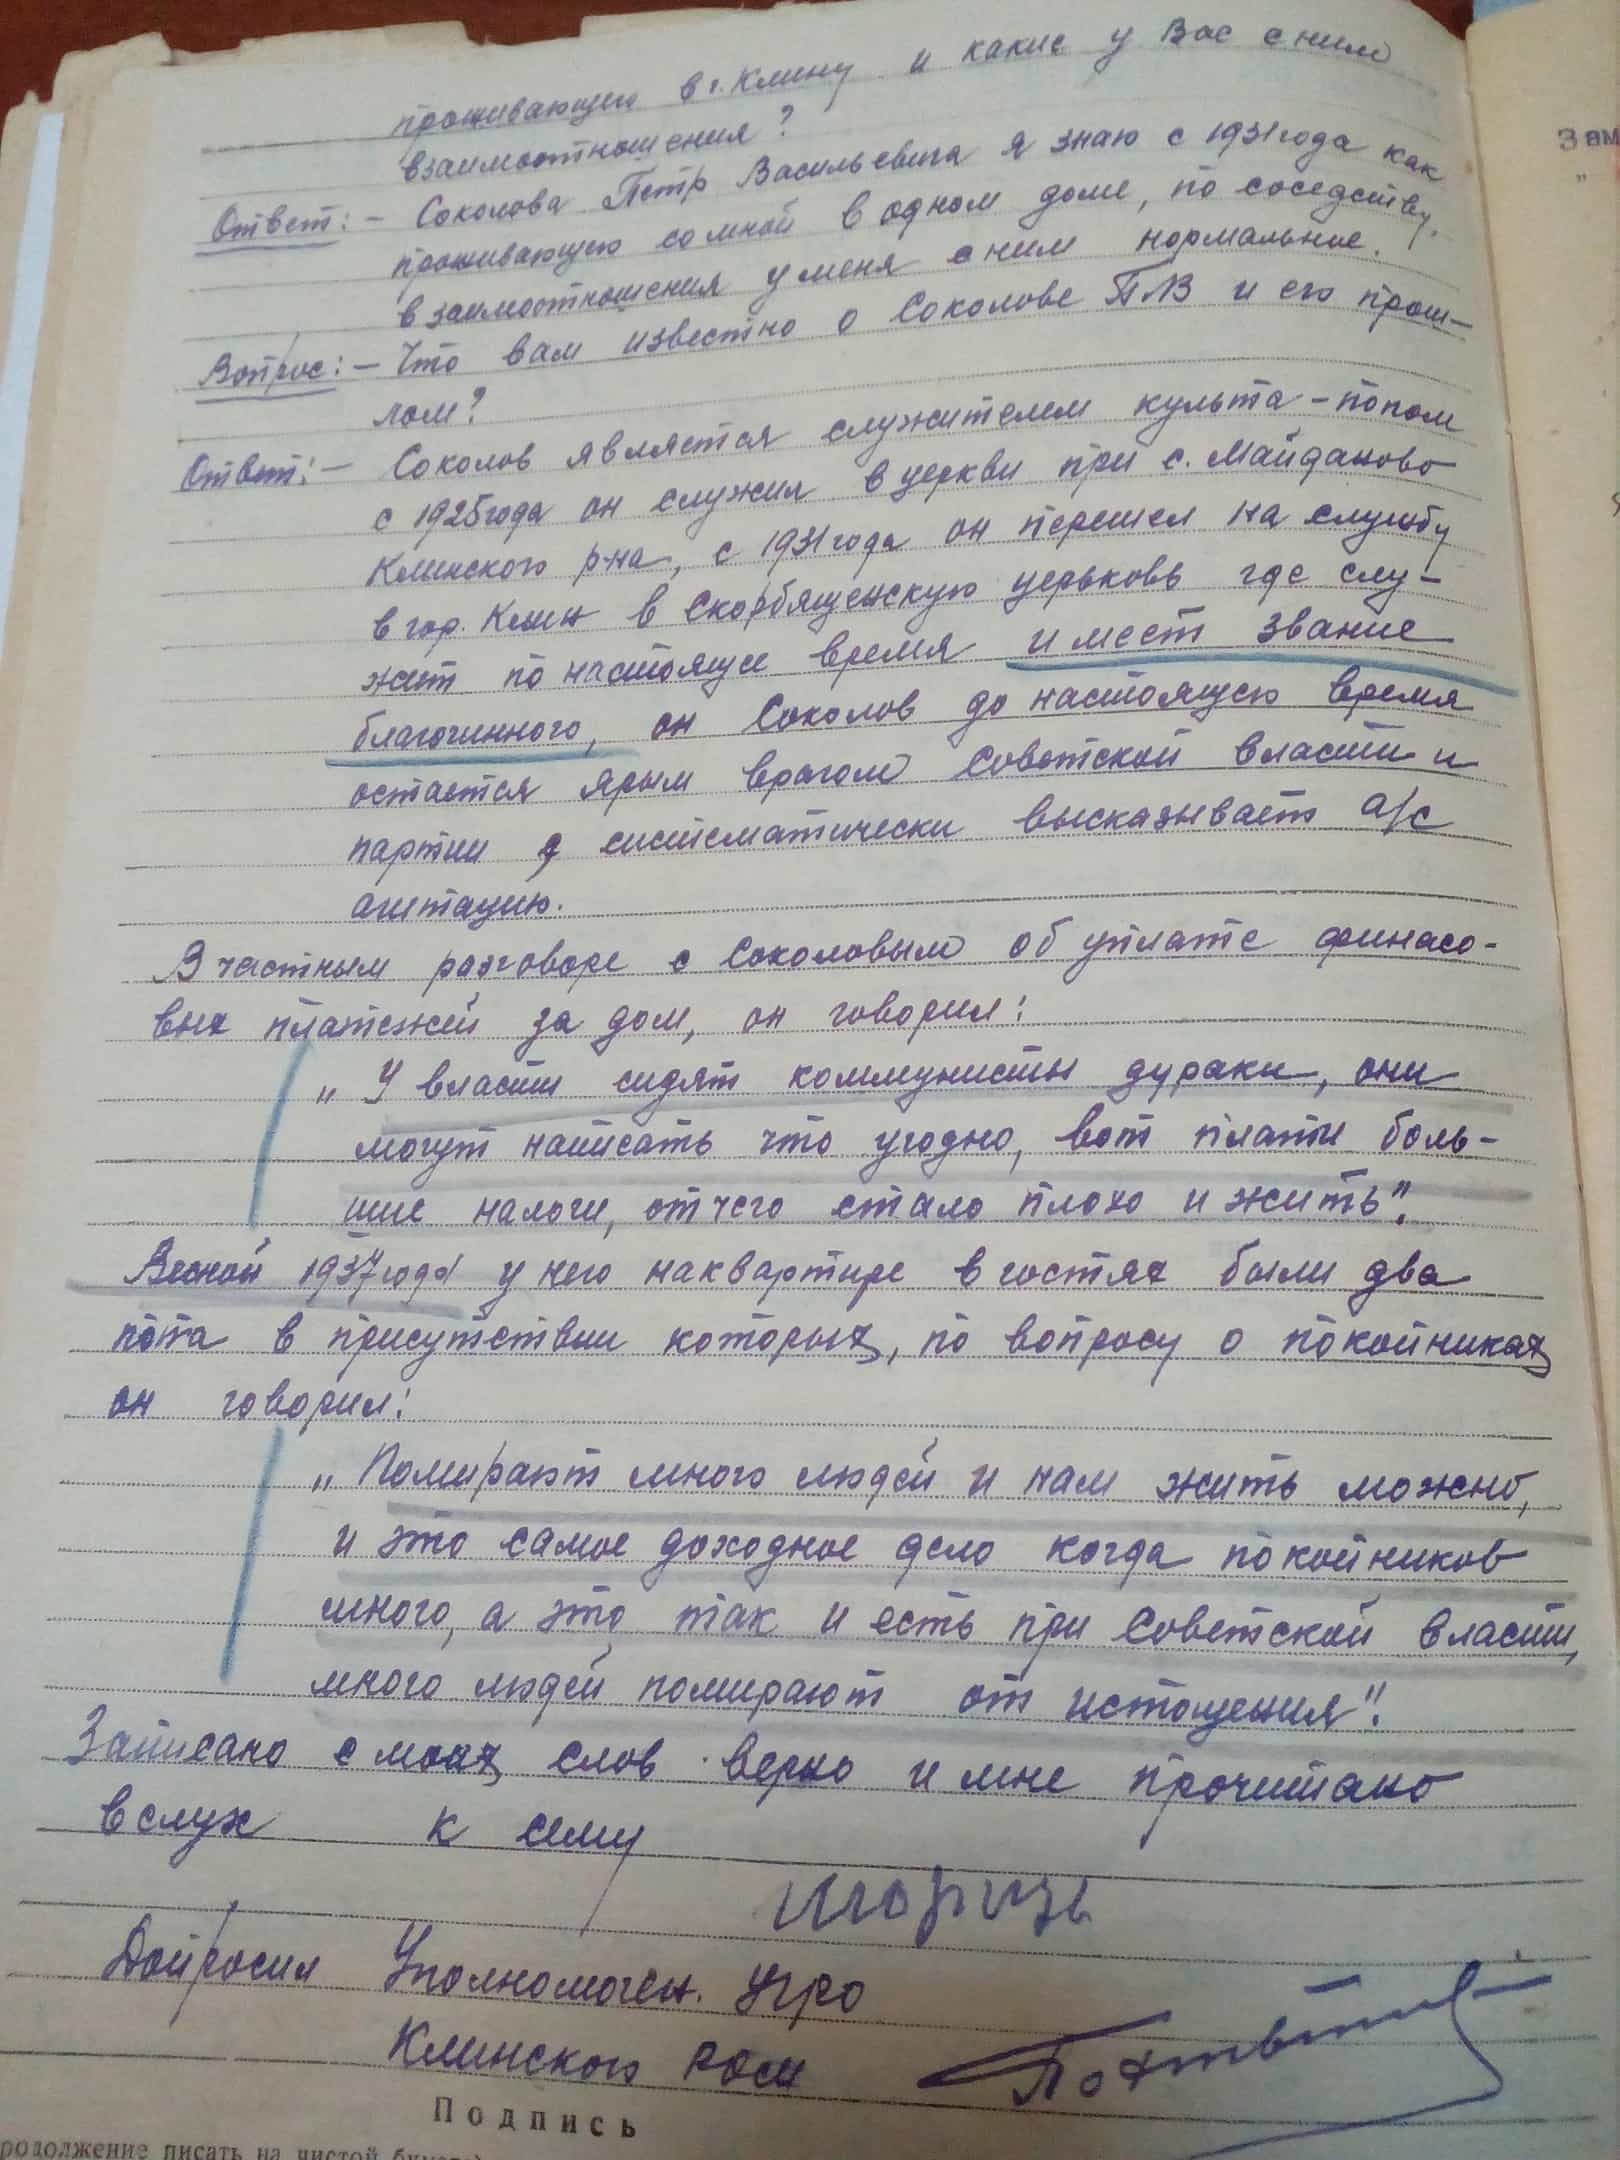 проживающего в г. Клину и какие у Вас с ним
взаимоотношения?
Ответ: – Соколова Петр Васильевича я знаю с 1931 года как
проживающего со мной в одном доме, по соседству,
взаимоотношения у меня с ним нормальные.
Вопрос: – Что вам известно о Соколове П В и его прош-
лом?
Ответ: – Соколов является служителем культа – попом
с 1925 года он служил в церкви при с. Майданово
Клинского р-на, с 1931 года он перешел на службу
в гор. Клин в Скорбященскую церьковь где слу-
жит по настоящее время имеет звание
благочинного, он Соколов до настоящего время
остается ярым врагом Советской власти и
партии систематически высказывает а/с
агитацию.
В частным разговоре с Соколовым об уплате финасо-
вых платежей за дом, он говорил:
„У власти сидят коммунисты дураки, они
могут написать что угодно, вот плати боль-
шие налоги, отчего стало плохо и жить".
Весной 1937 года у него на квартире в гостях были два
попа в присутствии которых, по вопросу о покойниках
он говорил:
„Помирают много людей и нам жить можно,
и это самое доходное дело когда покойников
много, а это так и есть при Советской власти,
много людей помирают от истощения".
Записано с моих слов верно и мне прочитано
вслух к сему
Допросил Уполномочен. Угро
Клинского РОМ
Подпись
родолжение писать на чистой
Зам